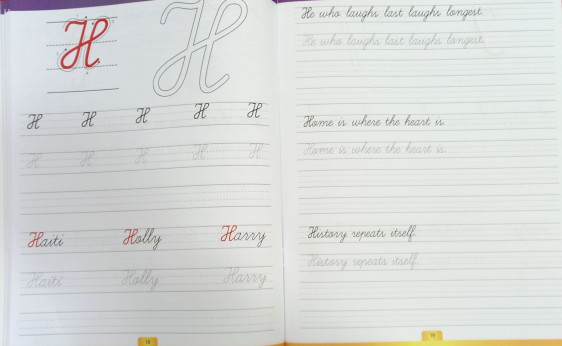 H H
H H H H H
H H H H H
Haiti Holly Harry
Haiti Holly Harry
He who laughs last laughs longest.
He who laughs last laughs longest.
Home is where the heart is.
Home is where the heart is.
History repeats itself.
History repeats itself.